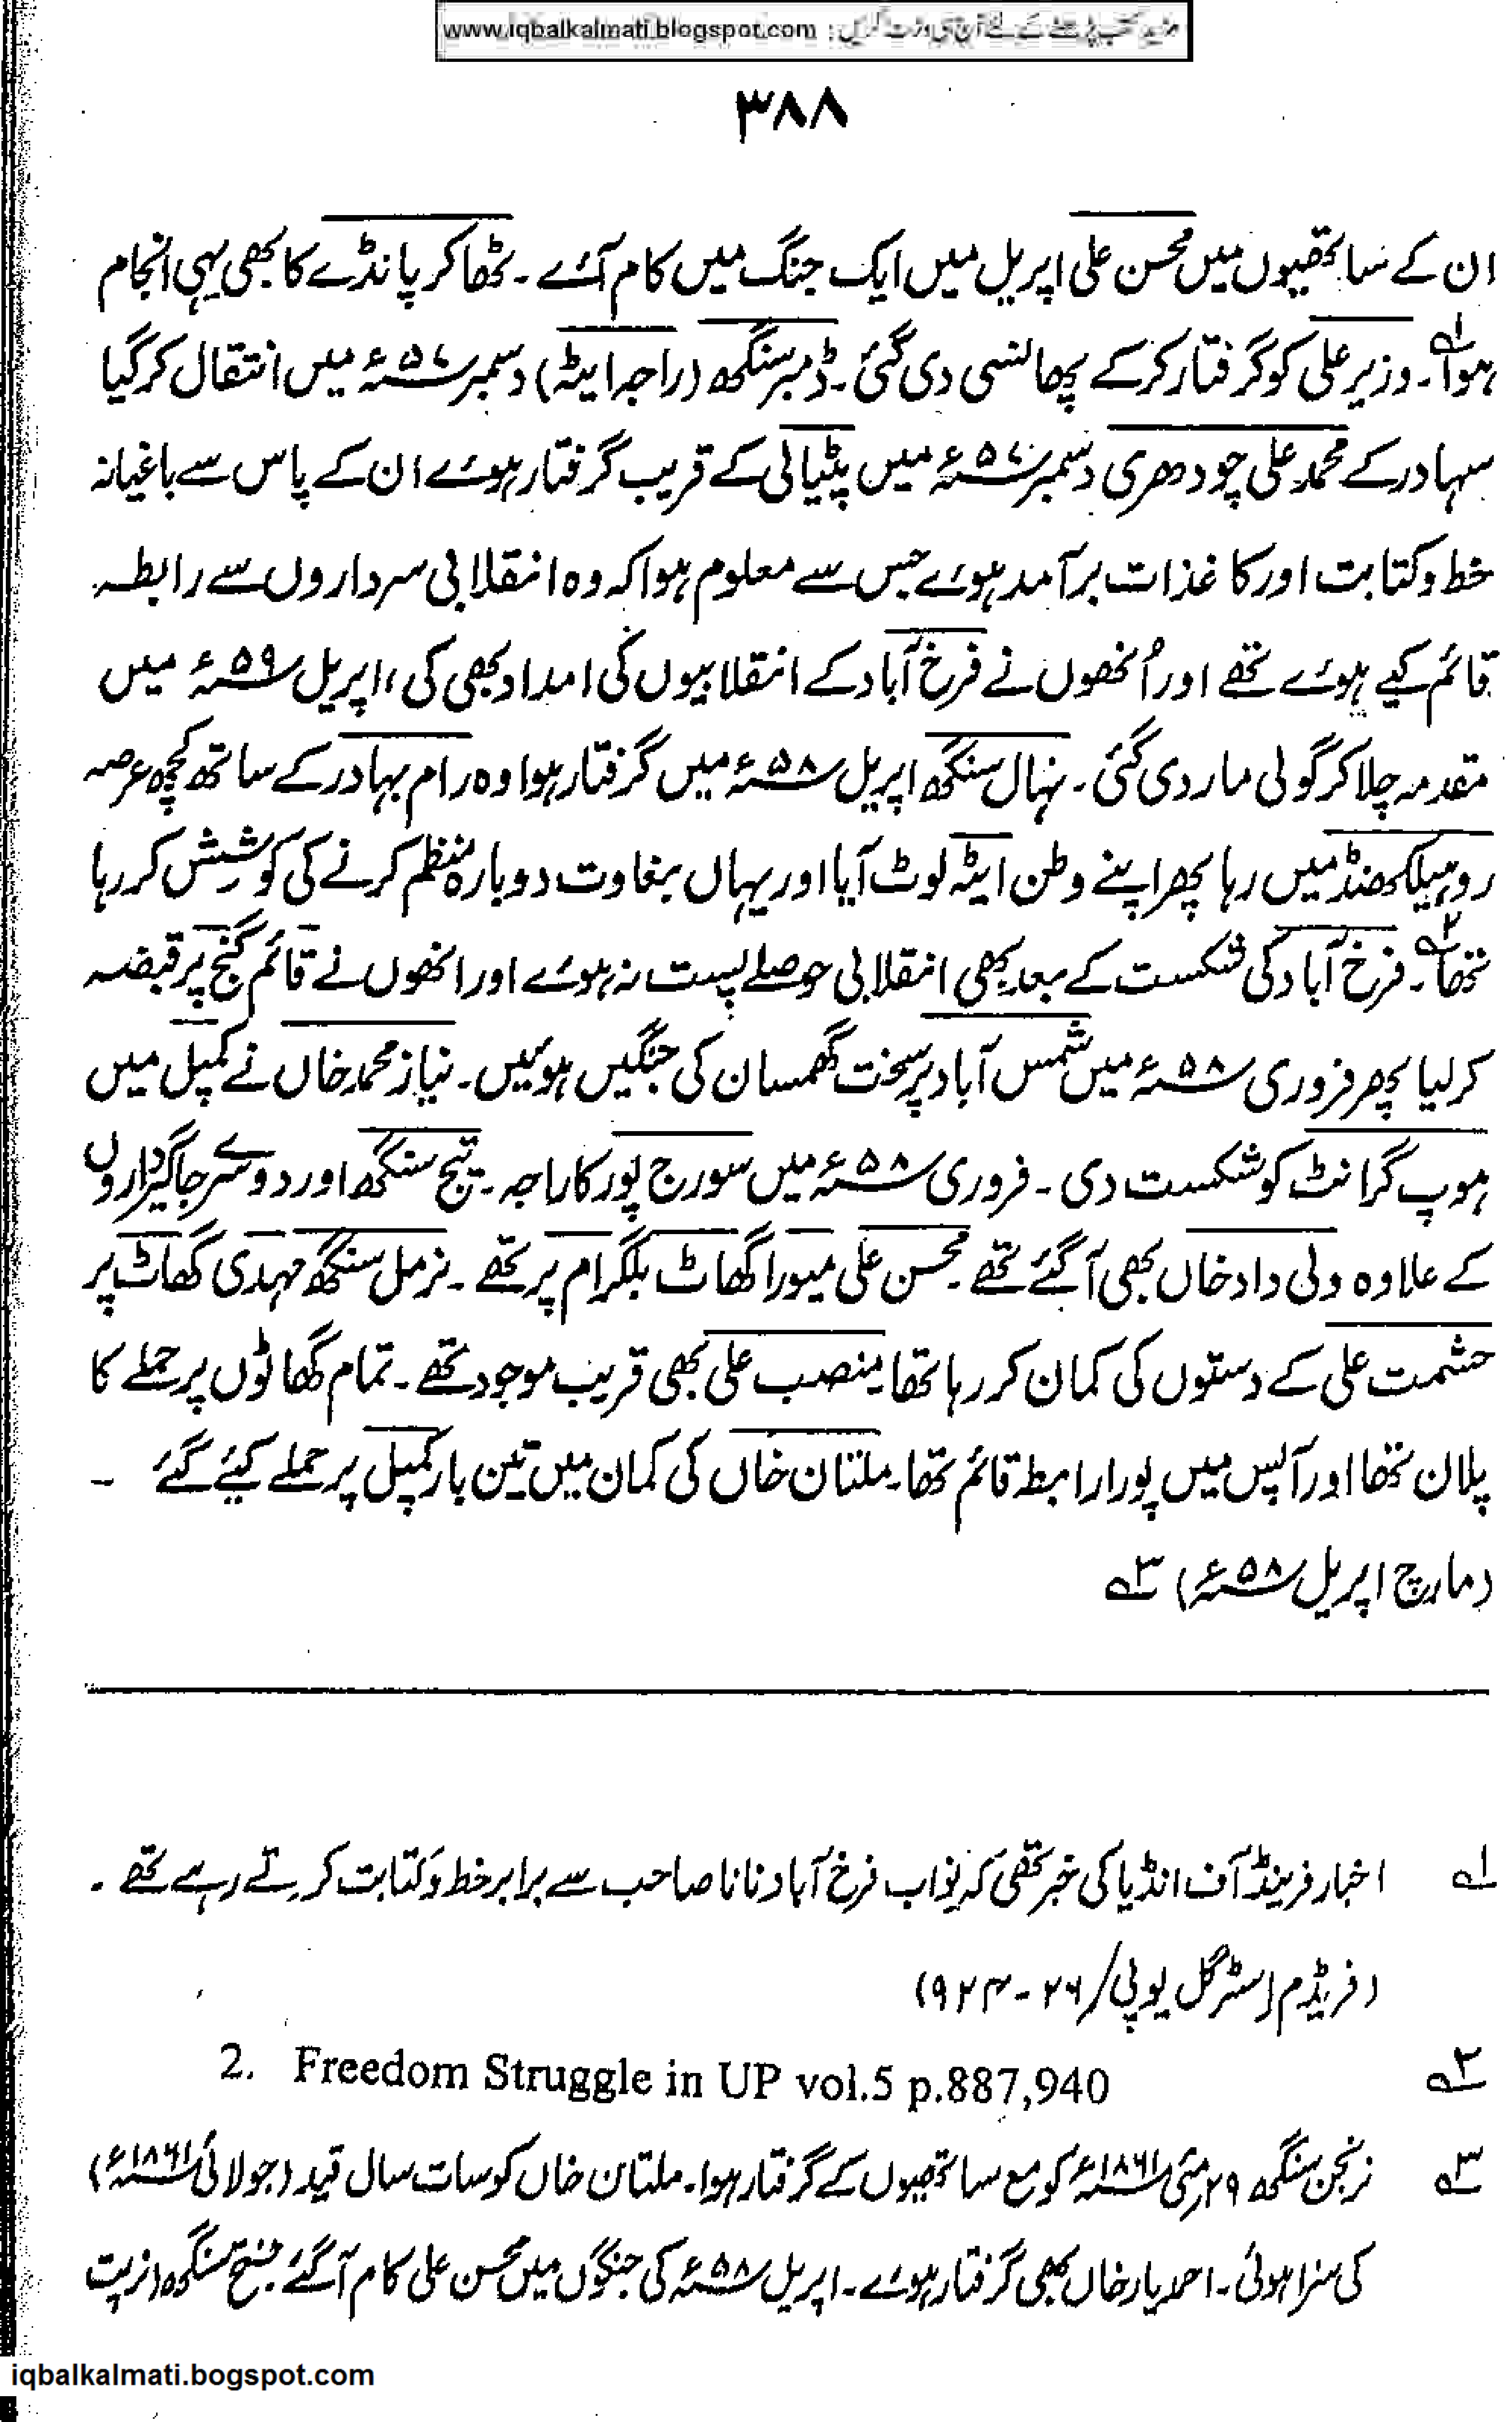 www.iqbalkalmati.blogspot.com : مزید کتب پڑھنے کے لئے آج ہی وزٹ کریں
۳۸۸
ان کے ساتھیوں میں محسن علی اپریل میں ایک جنگ میں کام آئے ۔ ٹھاکر پانڈے کا بھی یہی انجام
ہوا ۱؎ ۔ وزیر علی کو گرفتار کرکے پھانسی دی گئی ۔ ڈمبر سنگھ (راجہ ایٹہ) دسمبر ۵۷ء میں انتقال کر گیا
سہادر کے محمد علی چودھری دسمبر ۵۷ء میں پٹیالی کے قریب گرفتار ہوئے ان کے پاس سے باغیانہ
خط و کتابت اور کاغذات برآمد ہوئے جس سے معلوم ہوا کہ وہ انقلابی سرداروں سے رابطہ
قائم کیے ہوئے تھے اور اُنھوں نے فرخ آباد کے انقلابیوں کی امداد بھی کی ، اپریل ۵۹ء میں
مقدمہ چلا کر گولی مار دی گئی ۔ نہال سنگھ اپریل ۵۸ء میں گرفتار ہوا وہ رام بہادر کے ساتھ کچھ عرصہ
روہیلکھنڈ میں رہا پھر اپنے وطن ایٹہ لوٹ آیا اور یہاں بغاوت دوبارہ منظم کرنے کی کوشش کر رہا
تھا ۲؎ ۔ فرخ آباد کی شکست کے بعد بھی انقلابی حوصلے پست نہ ہوئے اور انھوں نے قائم گنج پر قبضہ
کر لیا پھر فروری ۵۸ء میں شمس آباد پر سخت گھمسان کی جنگیں ہوئیں ۔ نیاز محمد خاں نے کمپل میں
ہوپ گرانٹ کو شکست دی ۔ فروری ۵۸ء میں سورج پور کا راجہ ۔ تیج سنگھ اور دوسرے جاگیرداروں
کے علاوہ ولی داد خاں بھی آگئے تھے ۔ محسن علی میورا گھاٹ بلگرام پر تھے ۔ نرمل سنگھ مہدی گھاٹ پر
حشمت علی کے دستوں کی کمان کر رہا تھا منصب علی بھی قریب موجود تھے ۔ تمام گھاٹوں پر حملے کا
پلان تھا اور آپس میں پورا رابطہ قائم تھا ۔ ملتان خاں کی کمان میں تین بار کمپل پر حملے کیئے گئے ۔
(مارچ اپریل ۵۸ء) ۳؎
۱؎ اخبار فرینڈ آف انڈیا کی خبر تھی کہ نواب فرخ آباد نانا صاحب سے برابر خط و کتابت کرتے رہے تھے ۔
(فریڈم اسٹرگل یوپی/ ۲۶ - ۹۲۴)
۲؎ 2. Freedom Struggle in UP vol.5 p.887,940
۳؎ نرنجن سنگھ ۲۹ مئی ۱۸۶۱ء کو مع ساتھیوں کے گرفتار ہوا ۔ ملتان خاں کو سات سال قید (جولائی ۱۸۶۱ء)
کی سزا ہوئی ۔ احمد یار خاں بھی گرفتار ہوئے ۔ اپریل ۵۸ء کی جنگوں میں محسن علی کام آگئے سنگھ (نرپت
iqbalkalmati.bogspot.com